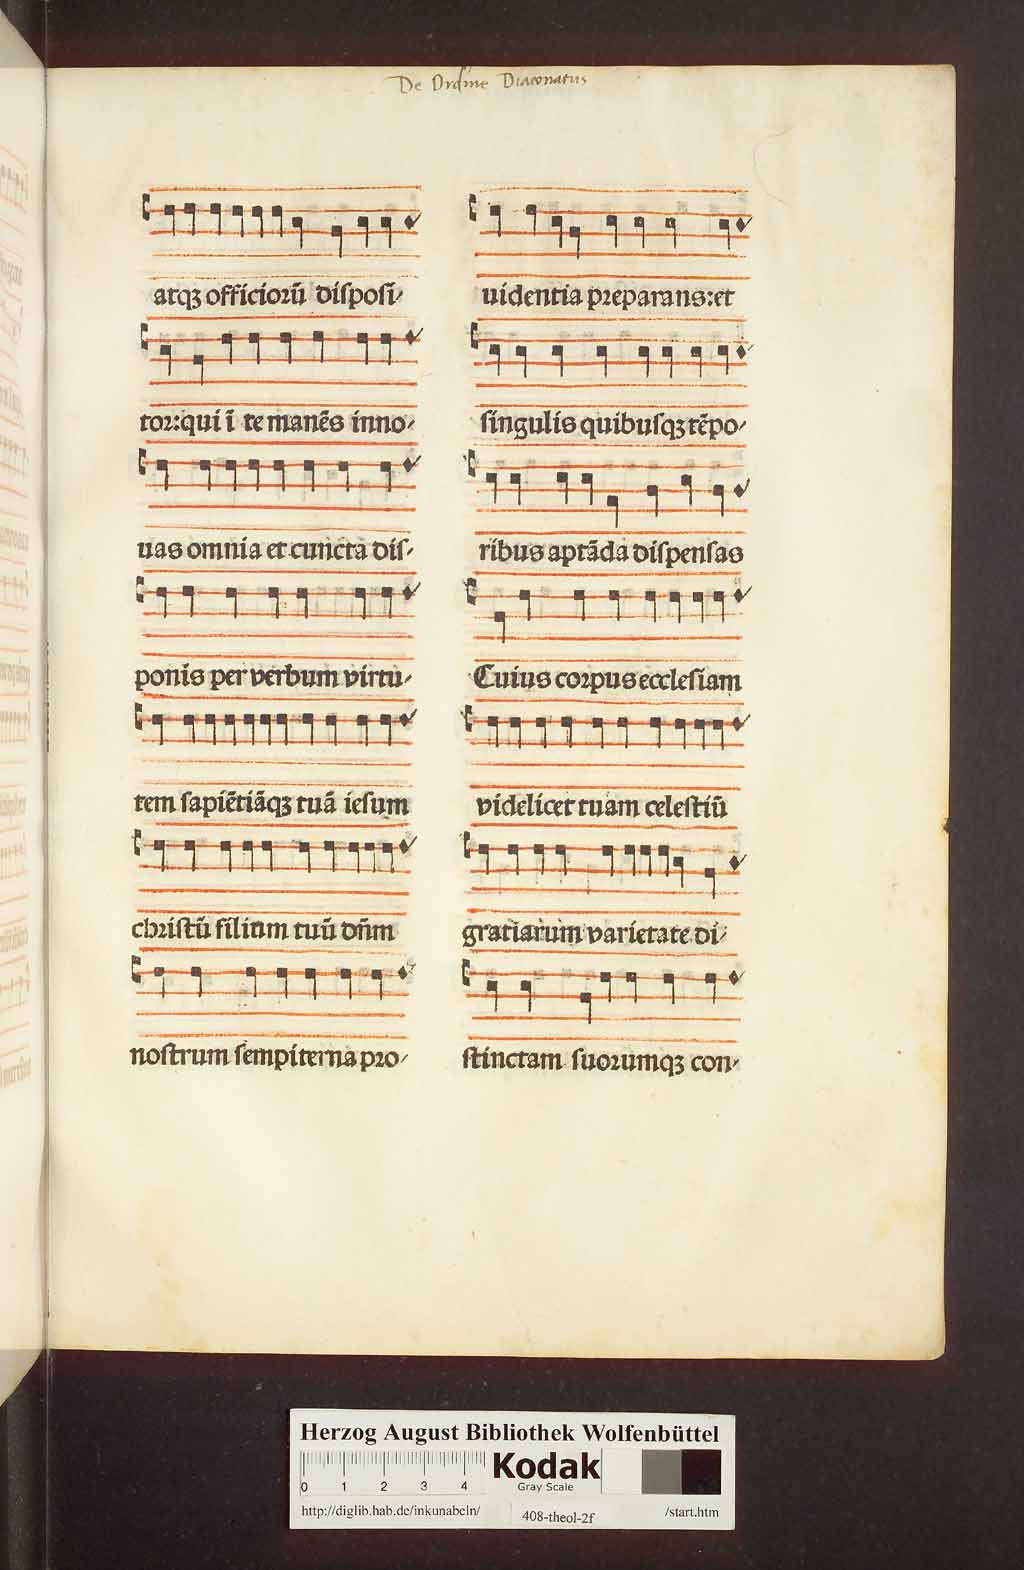 De Ordine Diaconatus
atqꝫ officioꝛū diſpoſi⸗
toꝛ:qui ī te manēs inno⸗
uas omnia et cuncta diſ⸗
ponis per verbum virtu⸗
tem ſapiētiāqꝫ tuā ieſum
chriſtū filium tuū dn̄m
noſtrum ſempiterna pꝛo⸗
uidentia pꝛeparans:et
ſingulis quibuſqꝫ tēpo⸗
ribus aptāda diſpenſas
Cuius coꝛpus eccleſiam
videlicet tuam celeſtiū
gratiarum varietate di⸗
ſtinctam ſuoꝛumqꝫ con⸗
Herzog August Bibliothek Wolfenbüttel
0 1 2 3 4
Kodak
Gray Scale
http://diglib.hab.de/inkunabeln/ 408-theol-2f /start.htm